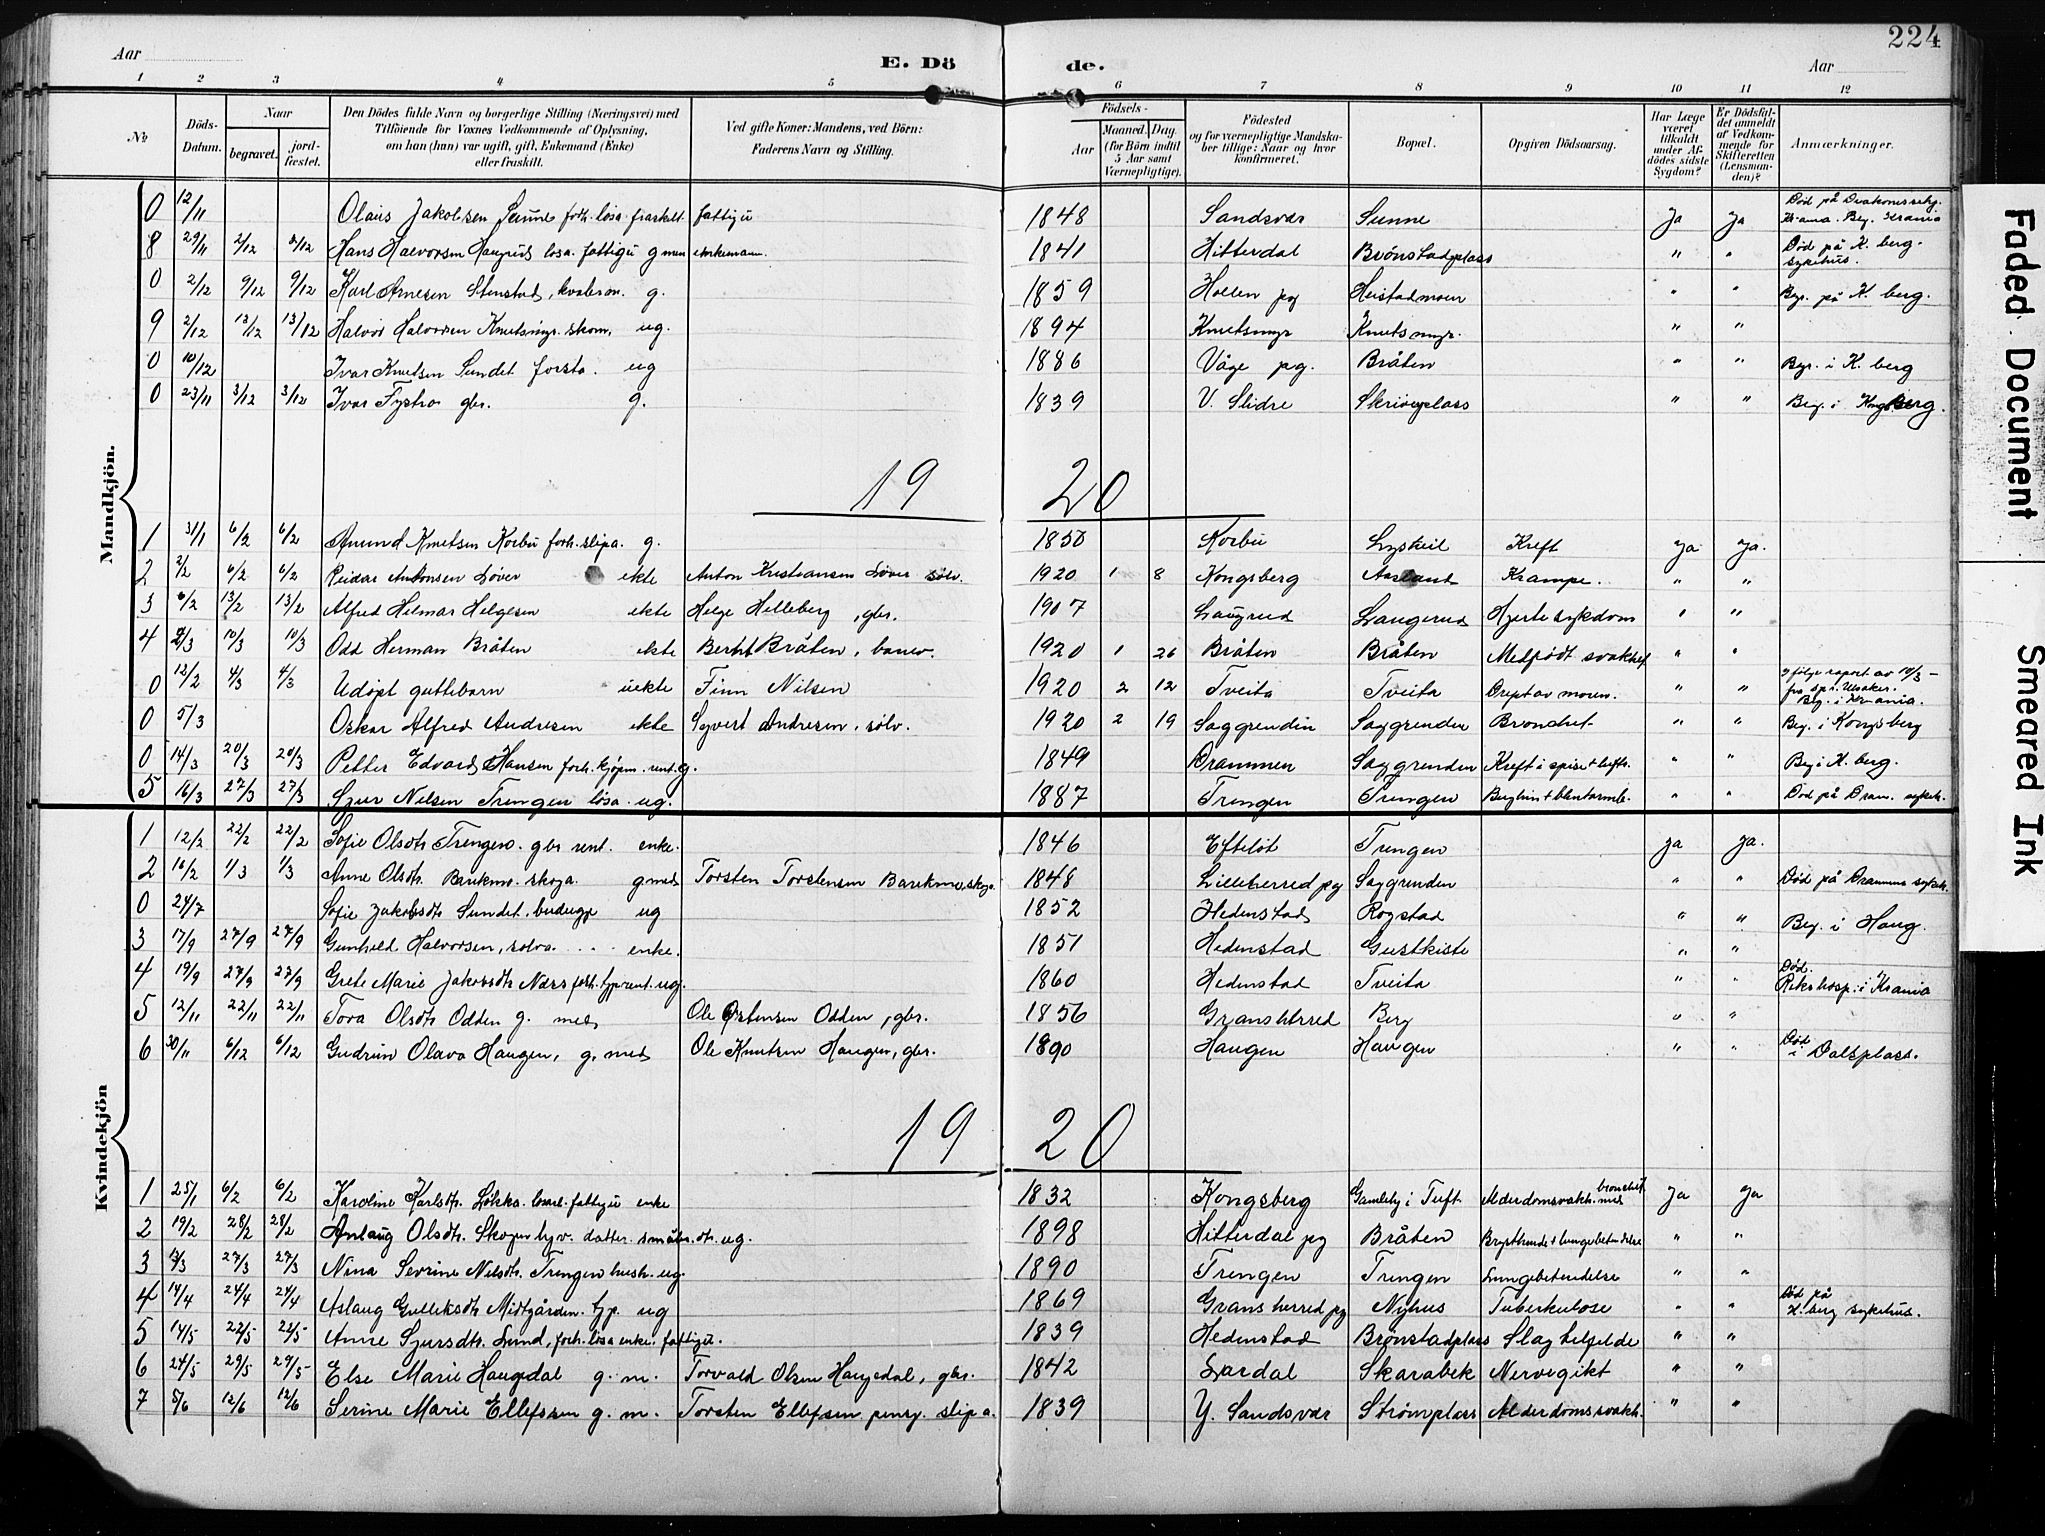 224
Aar
E. Dö de.
Aar
1 2 3 4 5 6 7 8 9 10 11 12
No
Döds-Datum.
Naar
begravet.
jord-fæstet.
Den Dödes fulde Navn og borgerlige Stilling (Næringsvei) med
Tilföiende for Voxnes Vedkommende af Oplysning,
om han (hun) var ugift, gift, Enkemand (Enke)
eller fraskilt.
Ved gifte Koner: Mandens, ved Börn:
Faderens Navn og Stilling.
Födsels-
Aar
Maaned. Dag.
(for Börn indtil
5 Aar samt
Værnepligtige).
Födested
og for værnepligtige Mandska-
ber tillige: Naar og hvor
konfirmeret.
Bopæl.
Opgiven Dödsaarsag.
Har Læge
været
tilkaldt
under Af-
dödes sidste
Sygdom?
Er Dödsfal-
det anmeldt
af Vedkom-
mende for
Skifteretten
(Lensman-
den)?
Anmærkninger.
Mandkjön.
0 12/11 Olaus Jakobsen Sunne forh. løsa. fraskilt. fattigu 1848 Sandsvær Sunne ja ja Død på Diakonissehj. Kr.ania. Beg. Krania
8 29/11 2/12 2/12 Hans Halvorsen Haugrud løsa. fattigu g men enkemann. 1841 Hitterdal Brønstadplass " " Død på K. berg. sykehus.
0 2/12 9/12 9/12 Karl Arnesen Stenstad, g. 1859 Hollen pg Heistadmoen " " Begr. på K. berg.
9 2/12 13/12 13/12 Halvor Halvorsen Knutsmyr. skom. ug. 1894 Knutsmyr Knutsmyr. " "
0 10/12 Ivar Knutsen Sundet forsta. ug 1886 Våge pg. Bråten " " Begr. i K. berg
0 23/11 3/12 3/12 Ivar Fystro gbr. g. 1839 V. Slidre Skriverplass " " Beg. i Kongsberg.
19 20
1 31/1 6/2 6/2 Amund Knutsen Korbu forh. slipa. g. 1850 Korbu Lyskeil Kreft ja ja.
2 2/2 6/2 6/2 Reidar Antonsen Løver ekte Anton Kristiansen Løver sølv. 1920 1 8 Kongsberg Aasland Krampe. " "
3 6/2 13/2 13/2 Alfred Hilmar Helgesen ekte Helge Helleberg, gbr. 1907 Laugrud Laugerud Hjertesykdom " "
4 2/3 10/3 10/3 Odd Herman Bråten ekte Bernt Bråten, banev. 1920 1 26 Bråten Bråten Medfødt svakhet " "
0 12/2 4/3 4/3 Udøpt guttebarn uekte Finn Nilsen 1920 2 12 Tveita Tveita Drept av moren. " " I følge raport av 10/3 – fra spr. Ulsaker. Beg. i Krania.
0 5/3 Oskar Alfred Andresen ekte Syvert Andresen, sølv. 1920 2 19 Saggrendin Saggrenden Bronchit " " Beg. i Kongsberg
0 14/3 20/3 20/3 Petter Edvard Hansen forh. kjøpm. rent. g. 1849 Drammen Saggrenden Kreft i spise + luftr. " " Beg i K. berg.
5 16/3 27/3 27/3 Sjur Nilsen Trengen løsa. ug. 1887 Trengen Trengen " " Død på Dram. sykeh.
Kvindekjön
1 12/2 22/2 22/2 Sofie Olsdtr Trengen. gbr rent. enke. 1846 Efteløt Trengen ja ja.
2 16/2 1/3 1/3 Anne Olsdtr. skoga. g med Torsten Torstensen 1848 Lilleherred pg Saggrenden " " Død på Drammens sykeh.
0 24/7 Sofie Jakobsdtr Sundet. budeigje ug 1852 Hedenstad Rogstad " " Beg. i Haug.
3 17/9 27/9 27/9 Gunhild Halvorsen, sølva. enke. 1851 Hedenstad Gustkiste " "
4 19/9 27/9 27/9 Grete Marie Jakobsdtr Næss forh. tj. rent. ug. 1860 Hedenstad Tveita " " Død. Rikshosp. i Krania
5 12/11 22/11 22/11 Tora Olsdtr Odden g. med Ole Østensen Odden, gbr. 1856 Gransherred Berg " "
6 30/11 6/12 6/12 Gudrun Olava Haugen, g. med Ole Knutsen Haugen, gbr. 1890 Haugen Haugen " " Død i Dalsplass.
19 20
1 25/1 6/2 6/2 Karoline Karlsdtr. fattigu enke 1832 Kongsberg Gamlehj i Tuft Alderdomsvakh. med bronchit ja ja
2 19/2 28/2 28/2 Anlaug Olsdtr. Skogen hjv. datter. småbr. dtr. ug. 1898 Hitterdal pg Bråten Brysthinde + lungebetendelse " "
3 17/3 27/3 27/3 Nina Sevrine Nilsdtr. Trengen hush. ug. 1890 Trengen Trengen Lungebetendelse " "
4 14/4 24/4 24/4 Aslaug Gulleksdtr Midtgården. tjp. ug 1869 Gransherred pg Nyhus Tuberkulose " " Død på K.berg sykehus.
5 14/5 22/5 22/5 Anne Sjursdtr. Lund, forh. løsa enke. fattigu. 1839 Hedenstad Brønstadplass Slagtilfelde " "
6 24/5 29/5 29/5 Else Marie Haugdal g. m. Torvald Olsen Haugedal, gbr. 1842 Lardal Skarabek Nervegikt " "
7 5/6 12/6 12/6 Serine Marie Ellefssen g. m. Torsten Ellefsen pensj. slipa. 1839 Y. Sandsvær Strømplass Alderdomssvakh. " "
Faded Document
Smeared Ink